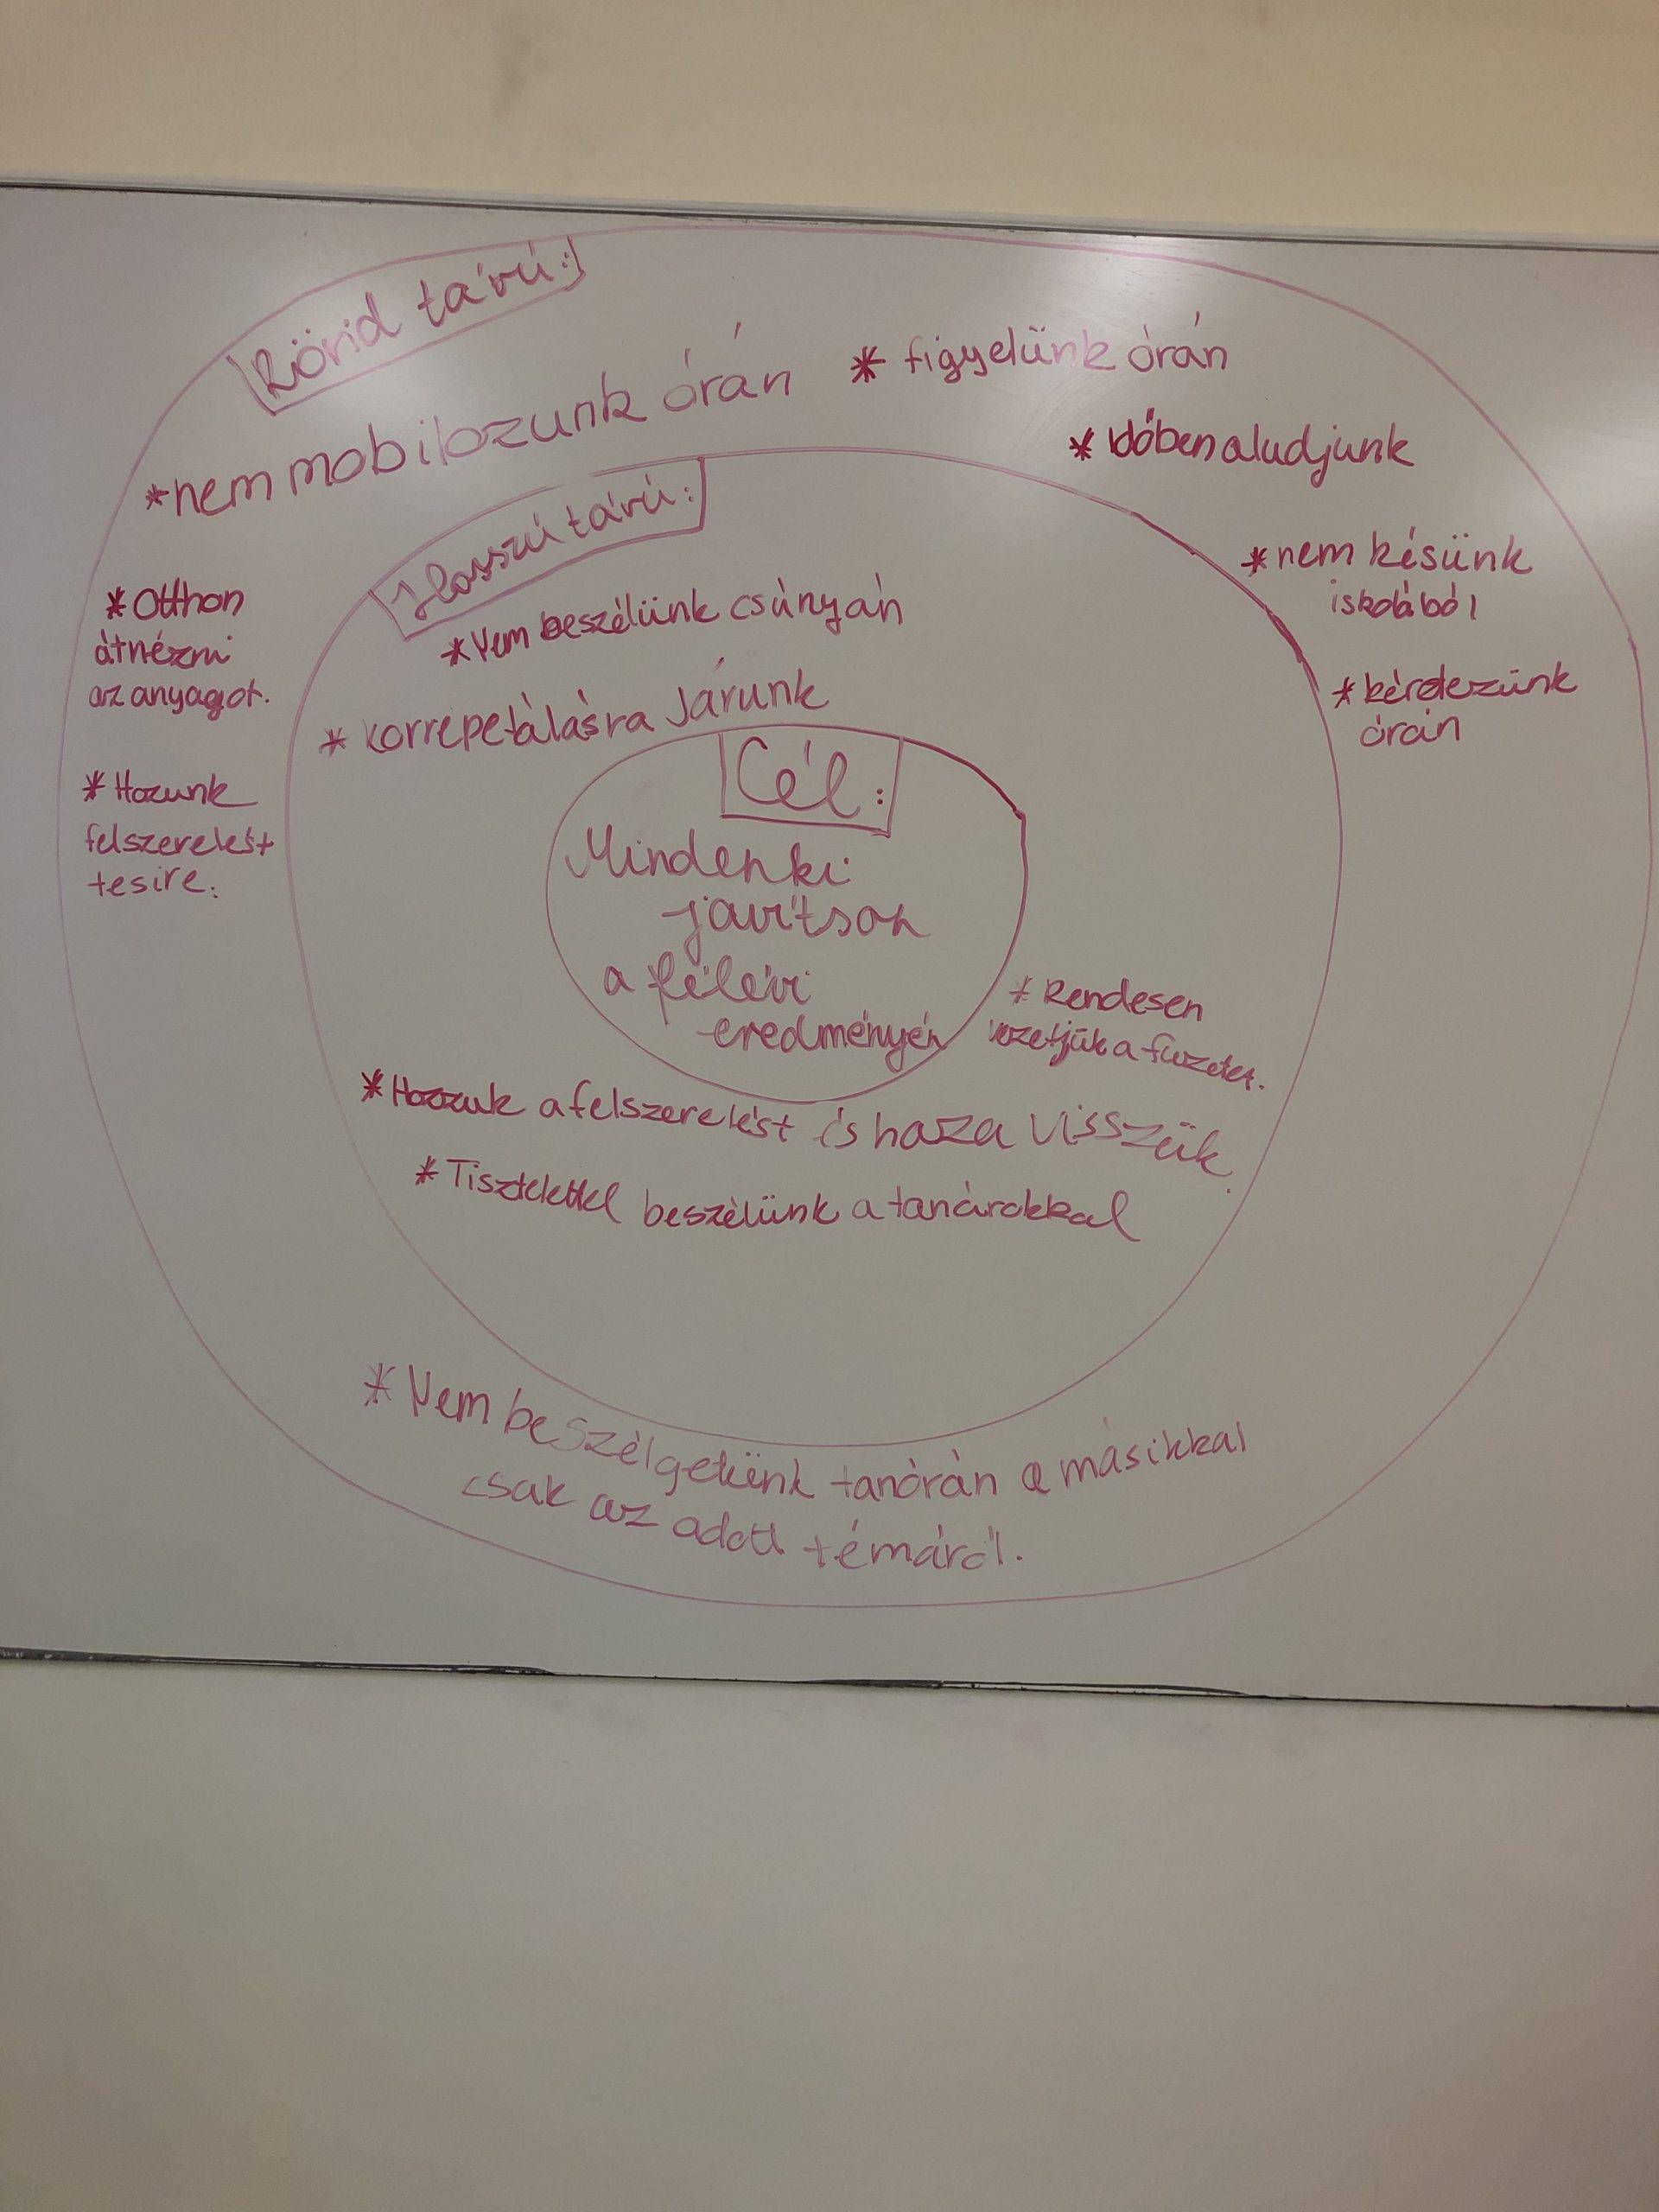 Rövid távú:
*nem mobilozunk órán
* figyelünk órán
* időben aludjunk
*nem késünk
iskolából
*kérdezünk
órán
*Otthon
átnézni
az anyagot.
*Hozunk
felszerelést
tesire.
Hosszú távú:
*Nem beszélünk csúnyán
* korrepetálásra Járunk
Cél:
Mindenki
javítson
a félévi
eredményén
* Rendesen
vezetjük a füzetet.
*Hozzuk a felszerelést és haza visszük.
*Tisztelettel beszélünk a tanárokkal
*Nem beszélgetünk tanórán a másikkal
csak az adott témáról.